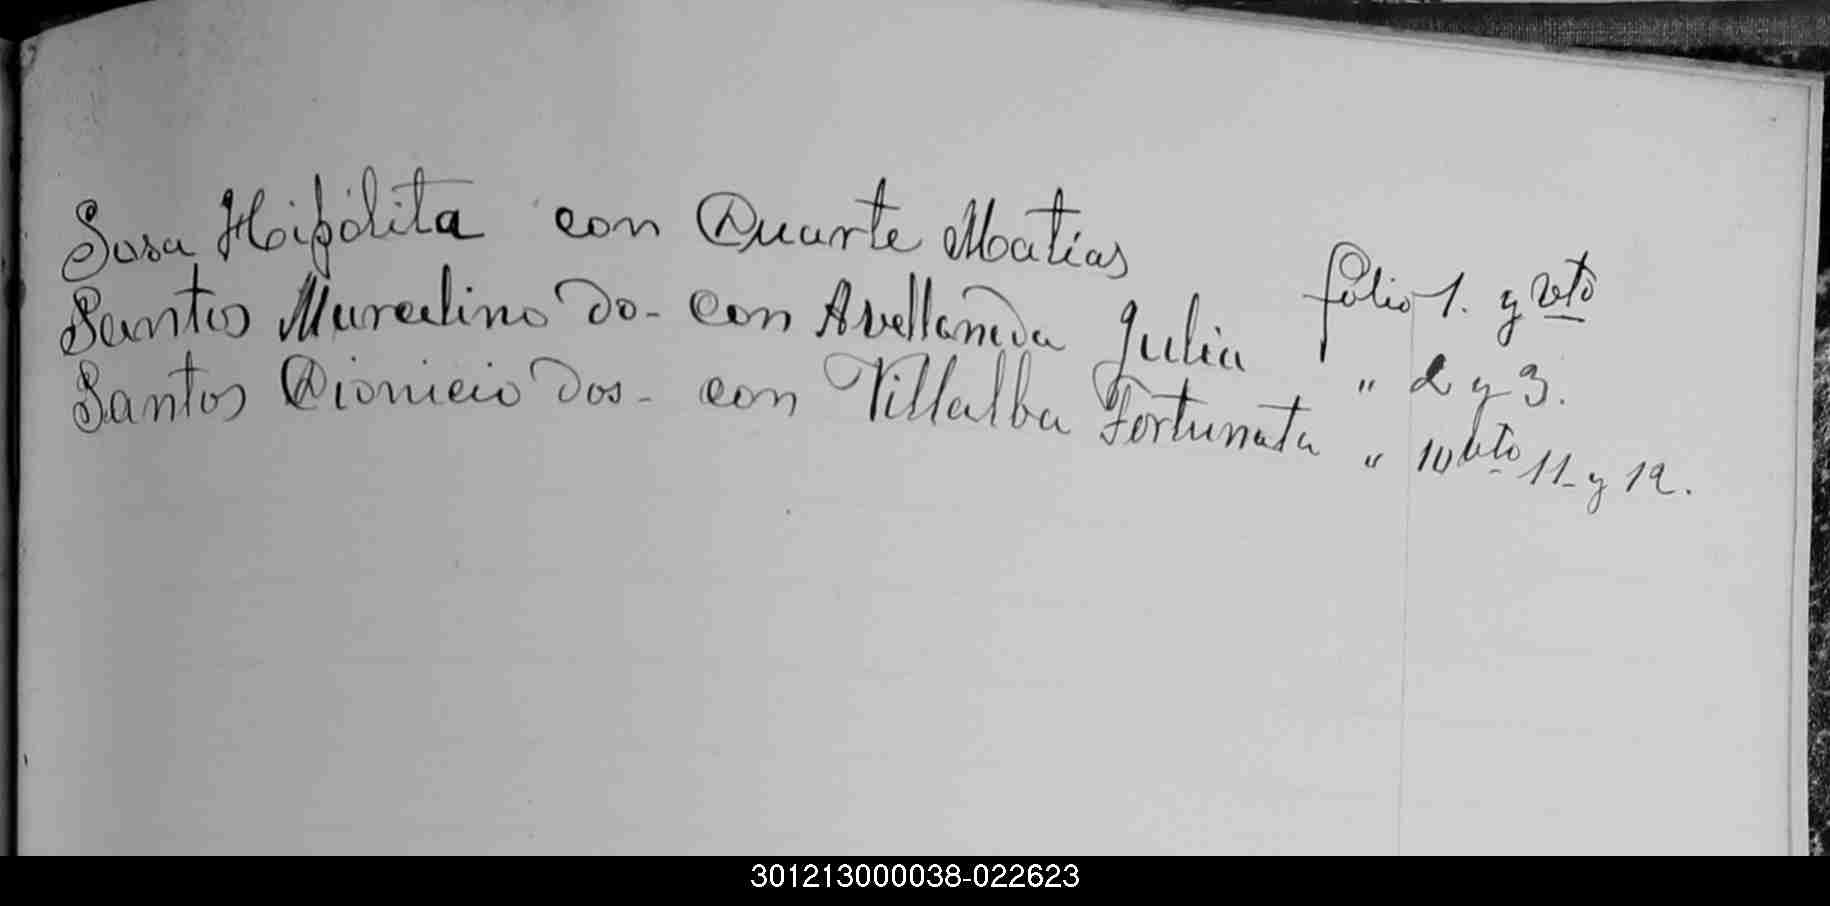 Sosa Hipólita con Duarte Matias folio 1. y vto
Santos Marcelino do- con Avellaneda Julia " 2 y 3.
Santos Dionicio dos- con Villalba Fortunata " 10 vto 11- y 12.
301213000038-022623